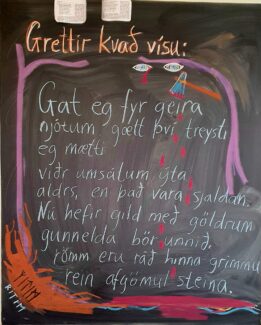 Grettir kvað vísu:
Gat eg fyr geira
njótum gætt því treysti
eg mætti
viðr umsátum ýta
aldrs, en það vara sjaldan.
Nú hefir gild með göldrum
gunnelda bör unnið,
römm eru ráð hinna grimmu
rein afgömul steina.